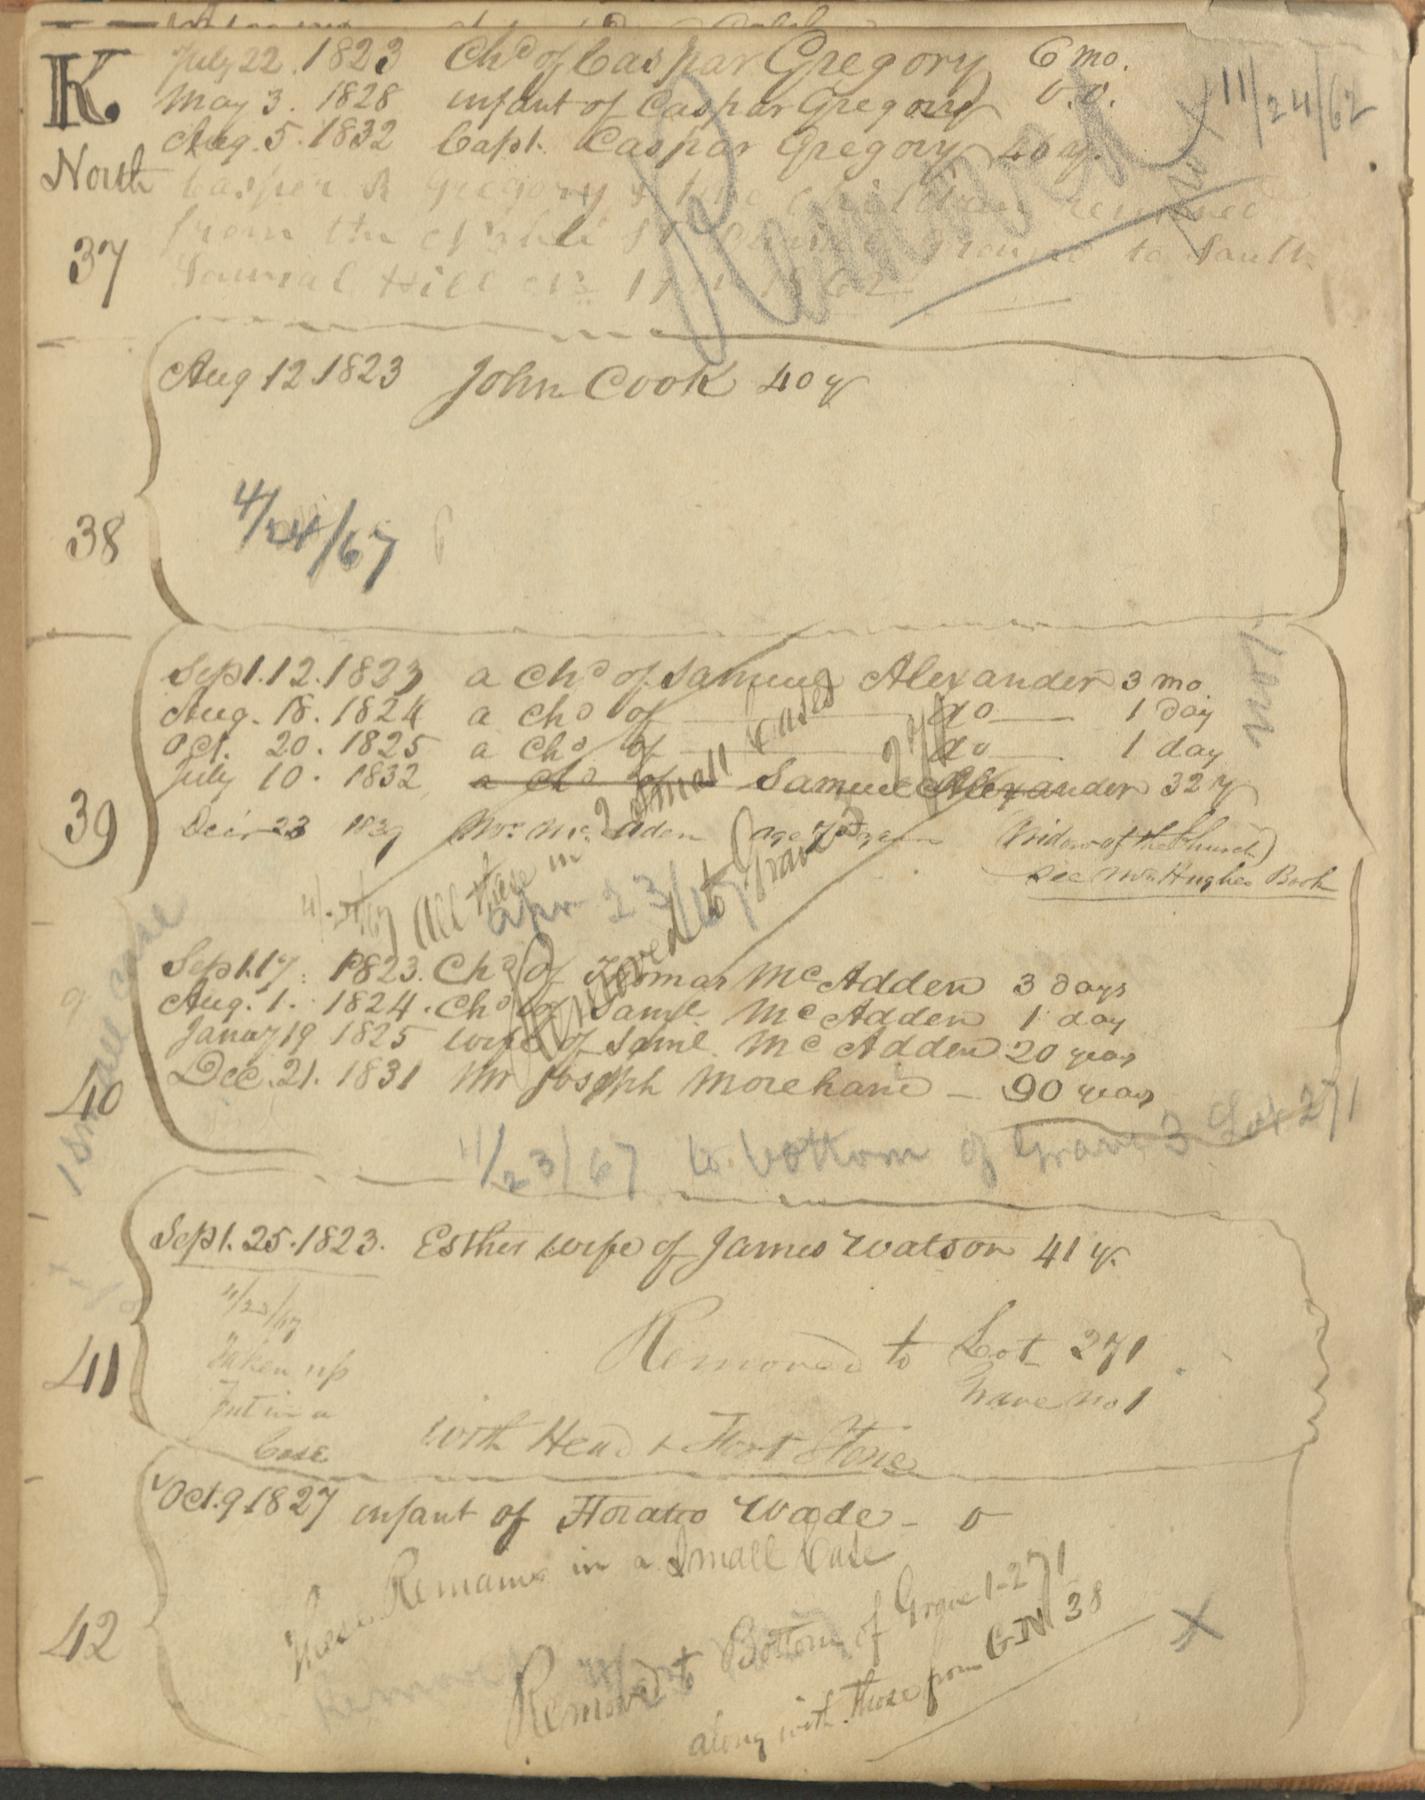 K
North
37
July 22. 1823 Chd of Caspar Gregory 6 mo.
May 3. 1828 infant of Caspar Gregory 0.0.
Aug. 5. 1832 Capt. Caspar Gregory 40 y.
11/24/62
Casper R Gregory & two children removed
from the to South
Laurel Hill 1862
Removed
38
Aug 12 1823 John Cook 40 y
4/24/67
39
Sept. 12. 1823 a Chd of Samuel Alexander 3 mo.
Aug. 18. 1824 a Chd of do 1 day
Oct. 20. 1825 a Chd of do 1 day
July 10. 1832 a chd of Samuel Alexander 32 y
Decir 23 1839 Mrs. Mc.Aden age 75 years (Widow of the Church)
see Wm Hughes Book
All these in 2 small Cases
Removed to Grave 3 271
Apr 23/67
1 small case
40
Sept. 17. 1823. Chd of Thomas McAdden 3 days
Aug. 1. 1824. Chd of Saml. McAdden 1 day
Janay 19 1825 wife of Saml. McAdden 20 years
Dec. 21. 1831 Mr Joseph Morehane 90 years
4/23/67 to bottom of Grave 3 Lot 271
41
Sept. 25. 1823. Esther wife of James Watson 41 y.
4/23/67
Taken up
Put in a
Case
Removed to Lot 271
Grave no 1
with Head & Foot Stone
42
Oct. 9 1827 infant of Horatio Wade - 0
These Remains in a Small Case
Removed to Bottom of Grave 1-271
along with those from GN 38
X